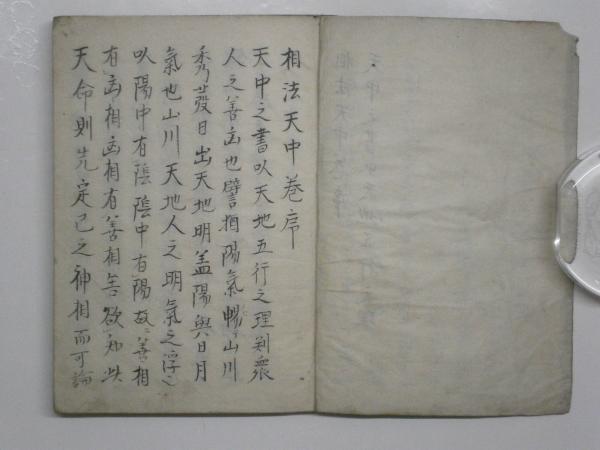 相法天中巻序
天中之書以天地五行之理判衆
人之善凶也譬相陽氣暢山川
秀發日出天地明盖陽與日月
氣也山川天地人之明氣之浮
以陽中有陰陰中有陽故善相
有凶相凶相有善相欲知此
天命則先定己之神相而可論